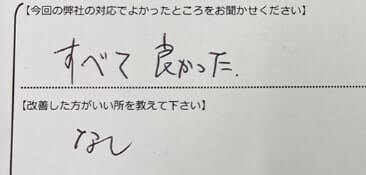 【今回の弊社の対応でよかったところをお聞かせください】
すべて 良かった.
【改善した方がいい所を教えて下さい】
なし